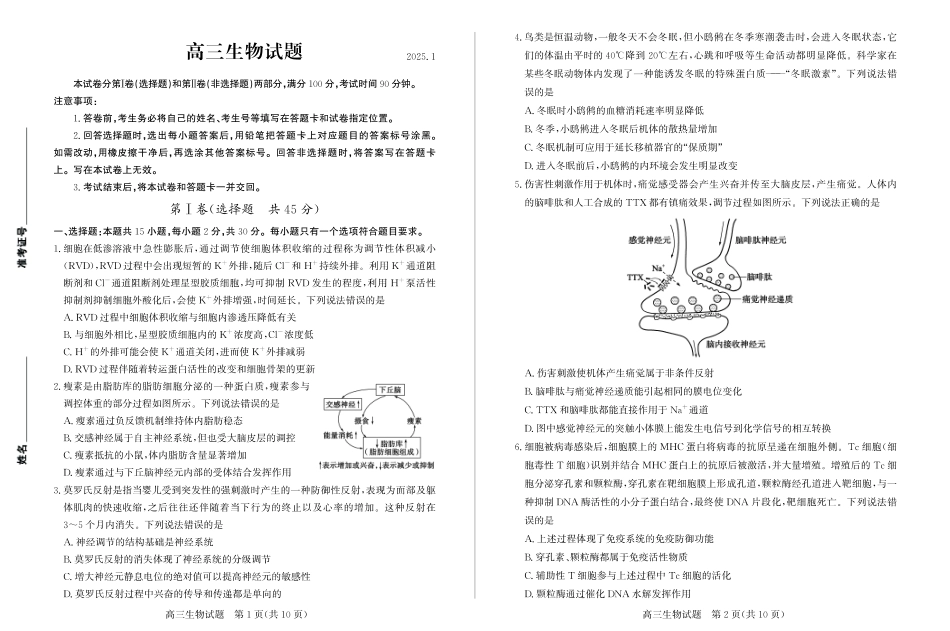 高三生物试题
2025.1
本试卷分第Ⅰ卷(选择题)和第Ⅱ卷(非选择题)两部分,满分 100 分,考试时间 90 分钟。
注意事项:
1. 答卷前,考生务必将自己的姓名、考生号等填写在答题卡和试卷指定位置。
2. 回答选择题时,选出每小题答案后,用铅笔把答题卡上对应题目的答案标号涂黑。
如需改动,用橡皮擦干净后,再选涂其他答案标号。回答非选择题时,将答案写在答题卡
上。写在本试卷上无效。
3. 考试结束后,将本试卷和答题卡一并交回。
第Ⅰ卷(选择题 共 45 分)
一、选择题:本题共 15 小题,每小题 2 分,共 30 分。每小题只有一个选项符合题目要求。
1. 细胞在低渗溶液中急性膨胀后,通过调节使细胞体积收缩的过程称为调节性体积减小
(RVD),RVD 过程中会出现短暂的 K⁺ 外排,随后 Cl⁻ 和 H⁺ 持续外排。利用 K⁺ 通道阻
断剂和 Cl⁻ 通道阻断剂处理星型胶质细胞,均可抑制 RVD 发生的程度,利用 H⁺ 泵活性
抑制剂抑制细胞外酸化后,会使 K⁺ 外排增强,时间延长。下列说法错误的是
A. RVD 过程中细胞体积收缩与细胞内渗透压降低有关
B. 与细胞外相比,星型胶质细胞内的 K⁺ 浓度高,Cl⁻ 浓度低
C. H⁺ 的外排可能会使 K⁺ 通道关闭,进而使 K⁺ 外排减弱
D. RVD 过程伴随着转运蛋白活性的改变和细胞骨架的更新
2. 瘦素是由脂肪库的脂肪细胞分泌的一种蛋白质,瘦素参与
调控体重的部分过程如图所示。下列说法错误的是
A. 瘦素通过负反馈机制维持体内脂肪稳态
B. 交感神经属于自主神经系统,但也受大脑皮层的调控
C. 瘦素抵抗的小鼠,体内脂肪含量显著增加
D. 瘦素通过与下丘脑神经元内部的受体结合发挥作用
下丘脑
交感神经↑
摄食↓
瘦素
能量消耗↑
↓脂肪库↑
(脂肪细胞组成)
↑表示增加或兴奋,↓表示减少或抑制
3. 莫罗氏反射是指当婴儿受到突发性的强刺激时产生的一种防御性反射,表现为面部及躯
体肌肉的快速收缩,之后往往还伴随着当下行为的终止以及心率的增加。这种反射在
3～5 个月内消失。下列说法错误的是
A. 神经调节的结构基础是神经系统
B. 莫罗氏反射的消失体现了神经系统的分级调节
C. 增大神经元静息电位的绝对值可以提高神经元的敏感性
D. 莫罗氏反射过程中兴奋的传导和传递都是单向的
高三生物试题 第 1 页(共 10 页)
准考证号
姓名
4. 鸟类是恒温动物,一般冬天不会冬眠,但小鸱鸺在冬季寒潮袭击时,会进入冬眠状态,它
们的体温由平时的 40℃降到 20℃左右,心跳和呼吸等生命活动都明显降低。科学家在
某些冬眠动物体内发现了一种能诱发冬眠的特殊蛋白质——“冬眠激素”。下列说法错
误的是
A. 冬眠时小鸱鸺的血糖消耗速率明显降低
B. 冬季,小鸱鸺进入冬眠后机体的散热量增加
C. 冬眠机制可应用于延长移植器官的“保质期”
D. 进入冬眠前后,小鸱鸺的内环境会发生明显改变
5. 伤害性刺激作用于机体时,痛觉感受器会产生兴奋并传至大脑皮层,产生痛觉。人体内
的脑啡肽和人工合成的 TTX 都有镇痛效果,调节过程如图所示。下列说法正确的是
感觉神经元
脑啡肽神经元
Na⁺
TTX
脑啡肽
痛觉神经递质
脑内接收神经元
A. 伤害刺激使机体产生痛觉属于非条件反射
B. 脑啡肽与痛觉神经递质能引起相同的膜电位变化
C. TTX 和脑啡肽都能直接作用于 Na⁺ 通道
D. 图中感觉神经元的突触小体膜上能发生电信号到化学信号的相互转换
6. 细胞被病毒感染后,细胞膜上的 MHC 蛋白将病毒的抗原呈递在细胞外侧。Tc 细胞(细
胞毒性 T 细胞)识别并结合 MHC 蛋白上的抗原后被激活,并大量增殖。增殖后的 Tc 细
胞分泌穿孔素和颗粒酶,穿孔素在靶细胞膜上形成孔道,颗粒酶经孔道进入靶细胞,与一
种抑制 DNA 酶活性的小分子蛋白结合,最终使 DNA 片段化,靶细胞死亡。下列说法错
误的是
A. 上述过程体现了免疫系统的免疫防御功能
B. 穿孔素、颗粒酶都属于免疫活性物质
C. 辅助性 T 细胞参与上述过程中 Tc 细胞的活化
D. 颗粒酶通过催化 DNA 水解发挥作用
高三生物试题 第 2 页(共 10 页)